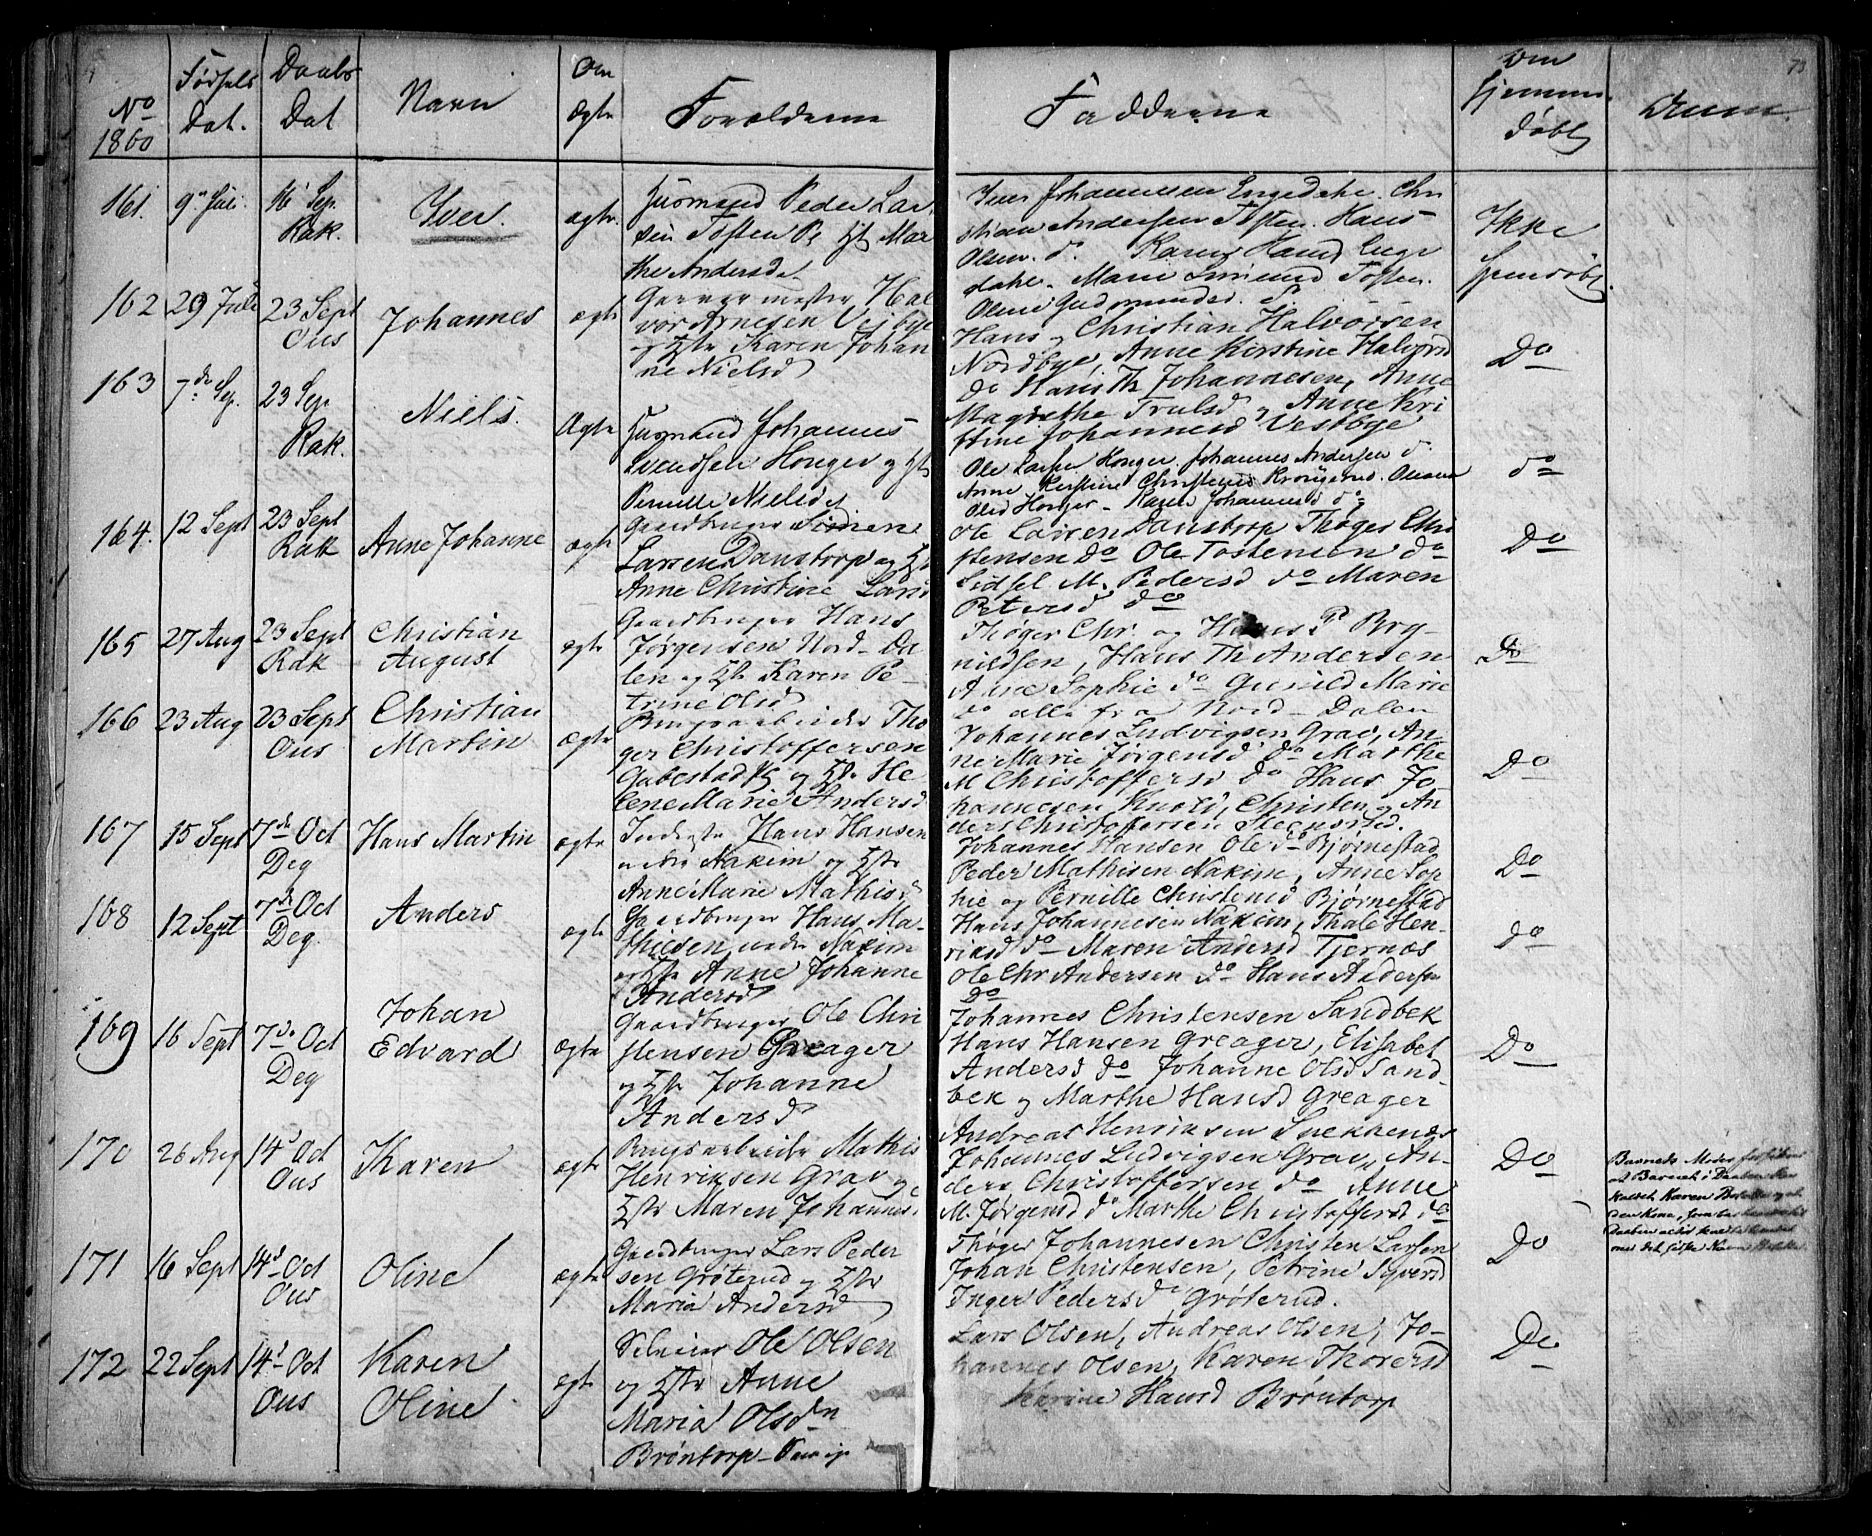 No
1860
Fødsels
Dat.
Daabs
Dat
Navn
Om
Ægte
Forældrene
Fadderne
Om
hjemme
døbt
Anm.
73
161. 9de Juli 16 Sep. Rak. Iver. ægte
Husmand Peder Lar
sen Toften Pl Hst Mar
the Andersdt
Iver Johannesen Engedahl. Chri
stian Andersen Toften. Hans
Olsen do. Karen Hansd Enge
dahl. Marie Simensd Toften.
Oline Gudmundsd.
Ikke
hjemdøbt.
162 29 Juli 23 Sept Ous Johannes ægte
Garvermester Hal
vor Arnesen Vejbye
og Hst Karen Johan
ne Nielsd
Hans og Christian Halvorsen
Nordbye, Anne Kirstine Halvorsd
do Hans Th Johannesen, Anne
Magrethe Trulsd og Anne Kri
stine Johannesd Vestbye
Do
163 7de Sep. 23 Sep Rak. Niels. Ægte
Husmand Johannes
Svendsen Honger og Hst
Pernille Nielsdt
Ole Larsen Honger. Johannes Andersen do.
Anne Kerstine Christensd Krongerud.
Olsd Honger - Karen Johannesd do
do
164. 12 Sept 23 Sept Rak Anne Johanne ægte
Gaardbruger Simen
Larsen Danstorp og Hst
Anne Christine Larsd
Ole Larsen Danstorp Thøger Chri
stensen do Ole Tostensen do
Sidsel M. Pedersd do Maren
Petersd do
Do
165 27 Aug 23 Sept Rak Christian August ægte
Gaardbruger Hans
Jørgensen Nord-Da
len og Hst Karen Pe-
trine Olsd
Thøger Chr. og Hans P Bry-
nildsen, Hans Th Andersen
Anne Sophie do Gunild Marie
do alle fra Nord-Dalen
Do
166 23 Aug 23 Sept Ous Christian Martin ægte
Brugsarbeider Thø
ger Christoffersen
Gabestad Pl og Hst He
lene Marie Andersd
Johannes Ludvigsen Grav, An-
ne Marie Jørgensd do Marthe
M Christoffersd do Hans Jo
hannesen Knold, Christen og An
ders Christoffersen Stegnsrød.
Do
167 15 Sept 7de Oct Deg Hans Martin ægte
Inderste Hans Hansen
under Nakim og Hst
Anne Marie Mathisd
Johannes Hansen Ole do Bjørnestad
Peder Mathisen Nakim, Anne Sop
hie og Pernille Christensd Bjørnestad
Do
168 12 Sept 7de Oct Deg. Anders ægte
Gaardbruger Hans Ma-
thiesen under Nakim
og Hst Anne Johanne
Andersd
Hans Johannesen Nakim, Thale Hen-
riksd do Maren Andersd Tjernæs
Ole Chr Andersen do Hans Andersen
Do
do
169 16 Sept 7de Oct Deg Johan Edvard ægte
Gaardbruger Ole Chri
stensen Greager
og Hst Johanne
Andersd
Johannes Christensen Sandbek
Hans Hansen Greager, Elisabet
Andersd do Johanne Olsd Sand-
bek og Marthe Hansd Greager
Do
170 26 Aug 14d Oct Ous Karen ægte
Brugsarbeider Mathis
Henriksen Grav og
Hst Maren Johannesd
Andreas Henriksen Snekkenæs
Johannes Ludvigsen Grav, An-
ders Christoffersen do Anne
M. Jørgensd do Marthe Christoffersd do
Do
Barnets Moder
at Barnet i Daaben
kaldet Karen
den Kone, som
Daaben
om det sidste Navn
171 16 Sept 14d Oct Ous Oline ægte
Gaardbruger Lars Peder
sen Grøterud og Hst
Maria Andersd
Thøger Johannesen Christen Larsen
Johan Christensen, Petrine Syversd
Inger Pedersd Grøterud.
Do
172 22 Sept 14d Oct Ous Karen Oline ægte
Selveier Ole Olsen
og Hst Anne
Maria Olsdn
Brøntorp
Lars Olsen, Andreas Olsen, Jo-
hannes Olsen, Karen Thorersd
Karine Hansd Brøntorp
Do